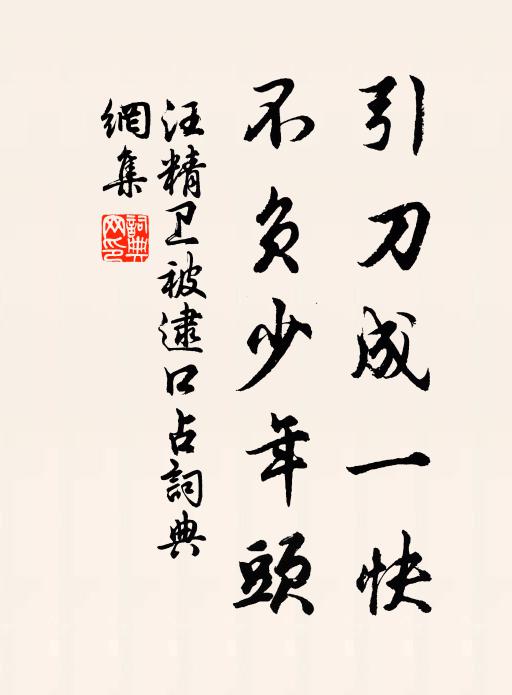 引刀成一快
不负少年頭
汪精卫被逮口占詞典
網集
詞典
网印